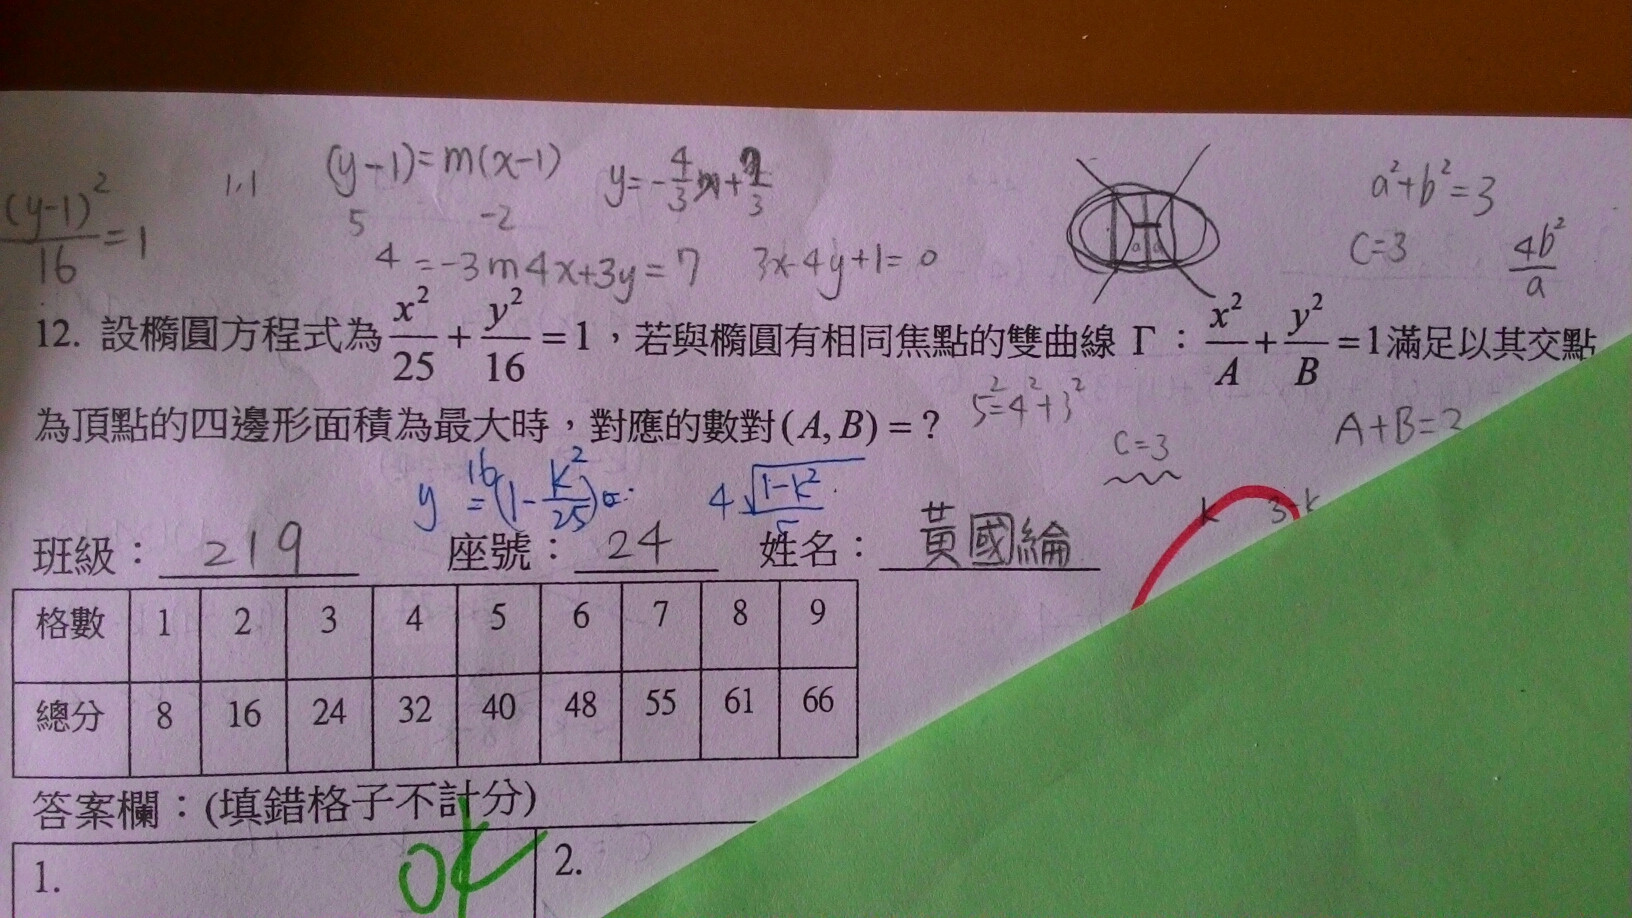 (y-1)=m(x-1)
1,1
(y-1)²/16=1
5 -2
a²+b²=3
4=-3m 4x+3y=7 3x-4y+1=0
C=3 4b²/a
12. 設橢圓方程式為 x²/25 + y²/16 = 1，若與橢圓有相同焦點的雙曲線 Γ：x²/A + y²/B = 1滿足以其交點
為頂點的四邊形面積為最大時，對應的數對(A, B) = ? 5²=4²+3²
C=3
班級：219 座號：24 姓名：黃國綸
格數 1 2 3 4 5 6 7 8 9
總分 8 16 24 32 40 48 55 61 66
答案欄：(填錯格子不計分)
1. OK 2.